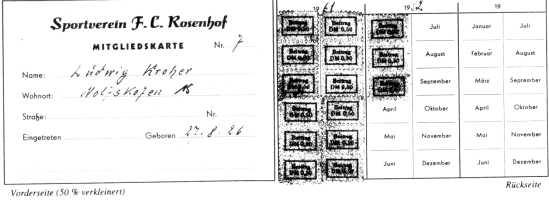 Sportverein F. C. Rosenhof
MITGLIEDSKARTE Nr. 7
Name: Ludwig Kroher
Wohnort:
Straße: Nr.
Eingetreten Geboren 27. 8. 26
Vorderseite (50 % verkleinert)
1961 1962 19
Beitrag DM 0,50 Beitrag DM 0,50 Beitrag DM 0,50 Juli Januar Juli
Beitrag DM 0,50 Beitrag DM 0,50 Beitrag DM 0,50 August Februar August
Beitrag DM 0,50 Beitrag DM 0,50 Beitrag DM 0,50 September März September
Beitrag DM 0,50 Beitrag DM 0,50 April Oktober April Oktober
Beitrag DM 0,50 Beitrag DM 0,50 Mai November Mai November
Beitrag DM 0,50 Beitrag DM 0,50 Juni Dezember Juni Dezember
Rückseite